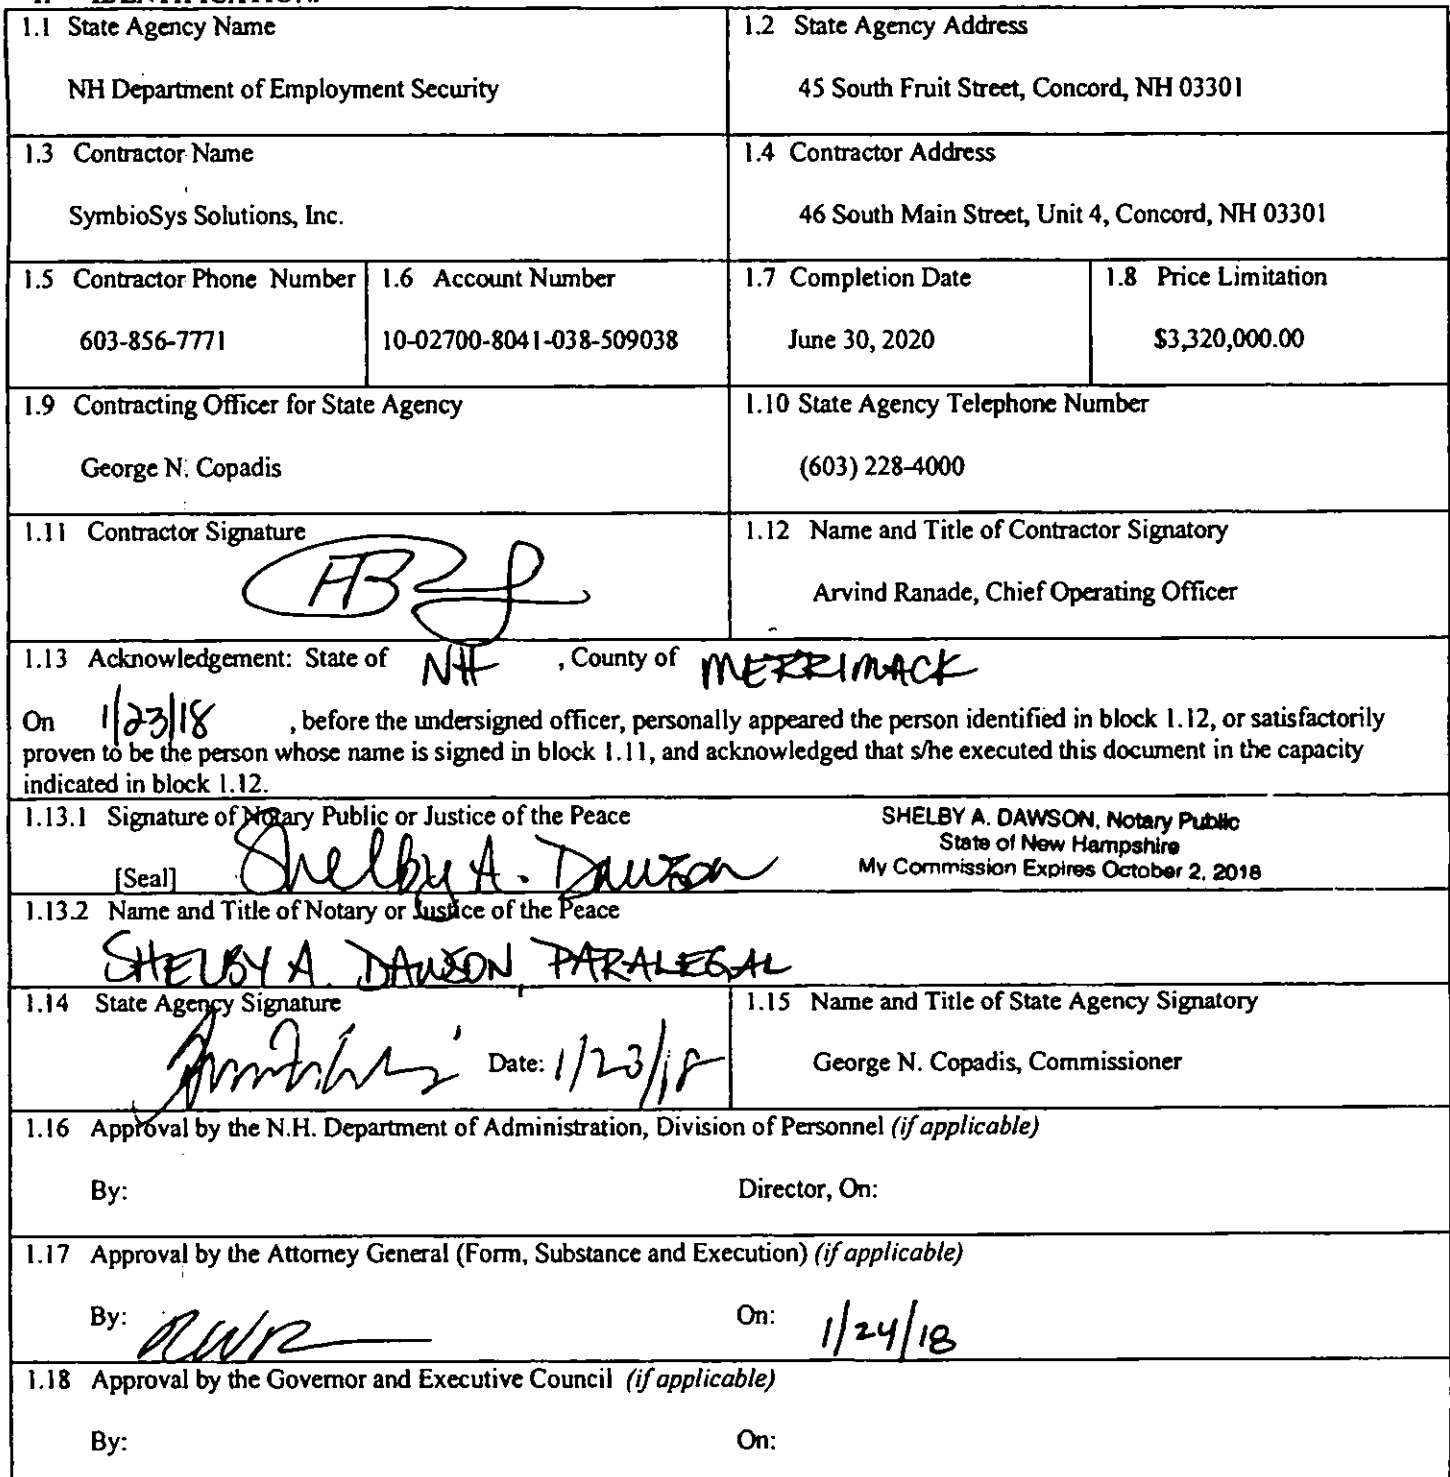 1.1 State Agency Name
NH Department of Employment Security
1.2 State Agency Address
45 South Fruit Street, Concord, NH 03301
1.3 Contractor Name
SymbioSys Solutions, Inc.
1.4 Contractor Address
46 South Main Street, Unit 4, Concord, NH 03301
1.5 Contractor Phone Number
603-856-7771
1.6 Account Number
10-02700-8041-038-509038
1.7 Completion Date
June 30, 2020
1.8 Price Limitation
$3,320,000.00
1.9 Contracting Officer for State Agency
George N. Copadis
1.10 State Agency Telephone Number
(603) 228-4000
1.11 Contractor Signature
1.12 Name and Title of Contractor Signatory
Arvind Ranade, Chief Operating Officer
1.13 Acknowledgement: State of NH , County of MERRIMACK
On 1/23/18 , before the undersigned officer, personally appeared the person identified in block 1.12, or satisfactorily
proven to be the person whose name is signed in block 1.11, and acknowledged that s/he executed this document in the capacity
indicated in block 1.12.
1.13.1 Signature of Notary Public or Justice of the Peace
[Seal] Shelby A. Dawson
SHELBY A. DAWSON, Notary Public
State of New Hampshire
My Commission Expires October 2, 2018
1.13.2 Name and Title of Notary or Justice of the Peace
SHELBY A. DAWSON, PARALEGAL
1.14 State Agency Signature
Date: 1/23/18
1.15 Name and Title of State Agency Signatory
George N. Copadis, Commissioner
1.16 Approval by the N.H. Department of Administration, Division of Personnel (if applicable)
By: Director, On:
1.17 Approval by the Attorney General (Form, Substance and Execution) (if applicable)
By: On: 1/24/18
1.18 Approval by the Governor and Executive Council (if applicable)
By: On: